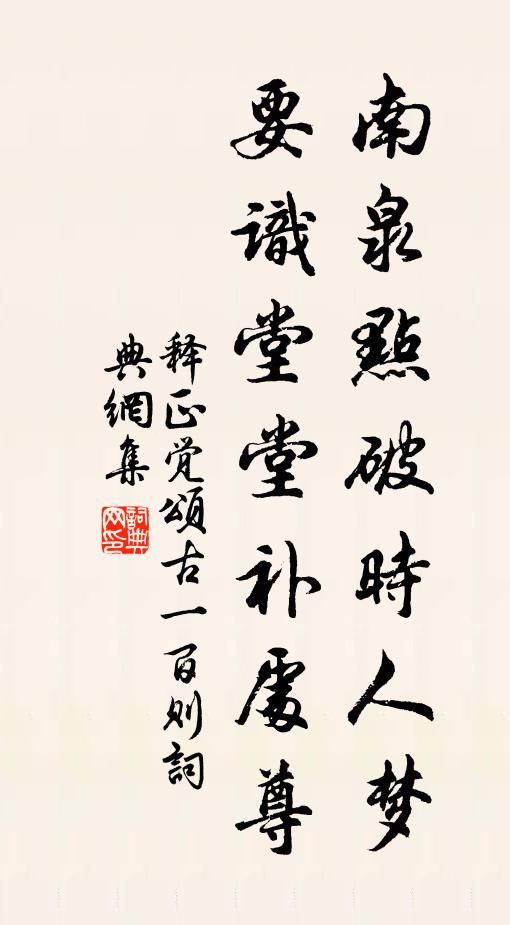 南泉點破時人梦
要識堂堂补處尊
释正觉頌古一百则詞
典網集
詞典网印